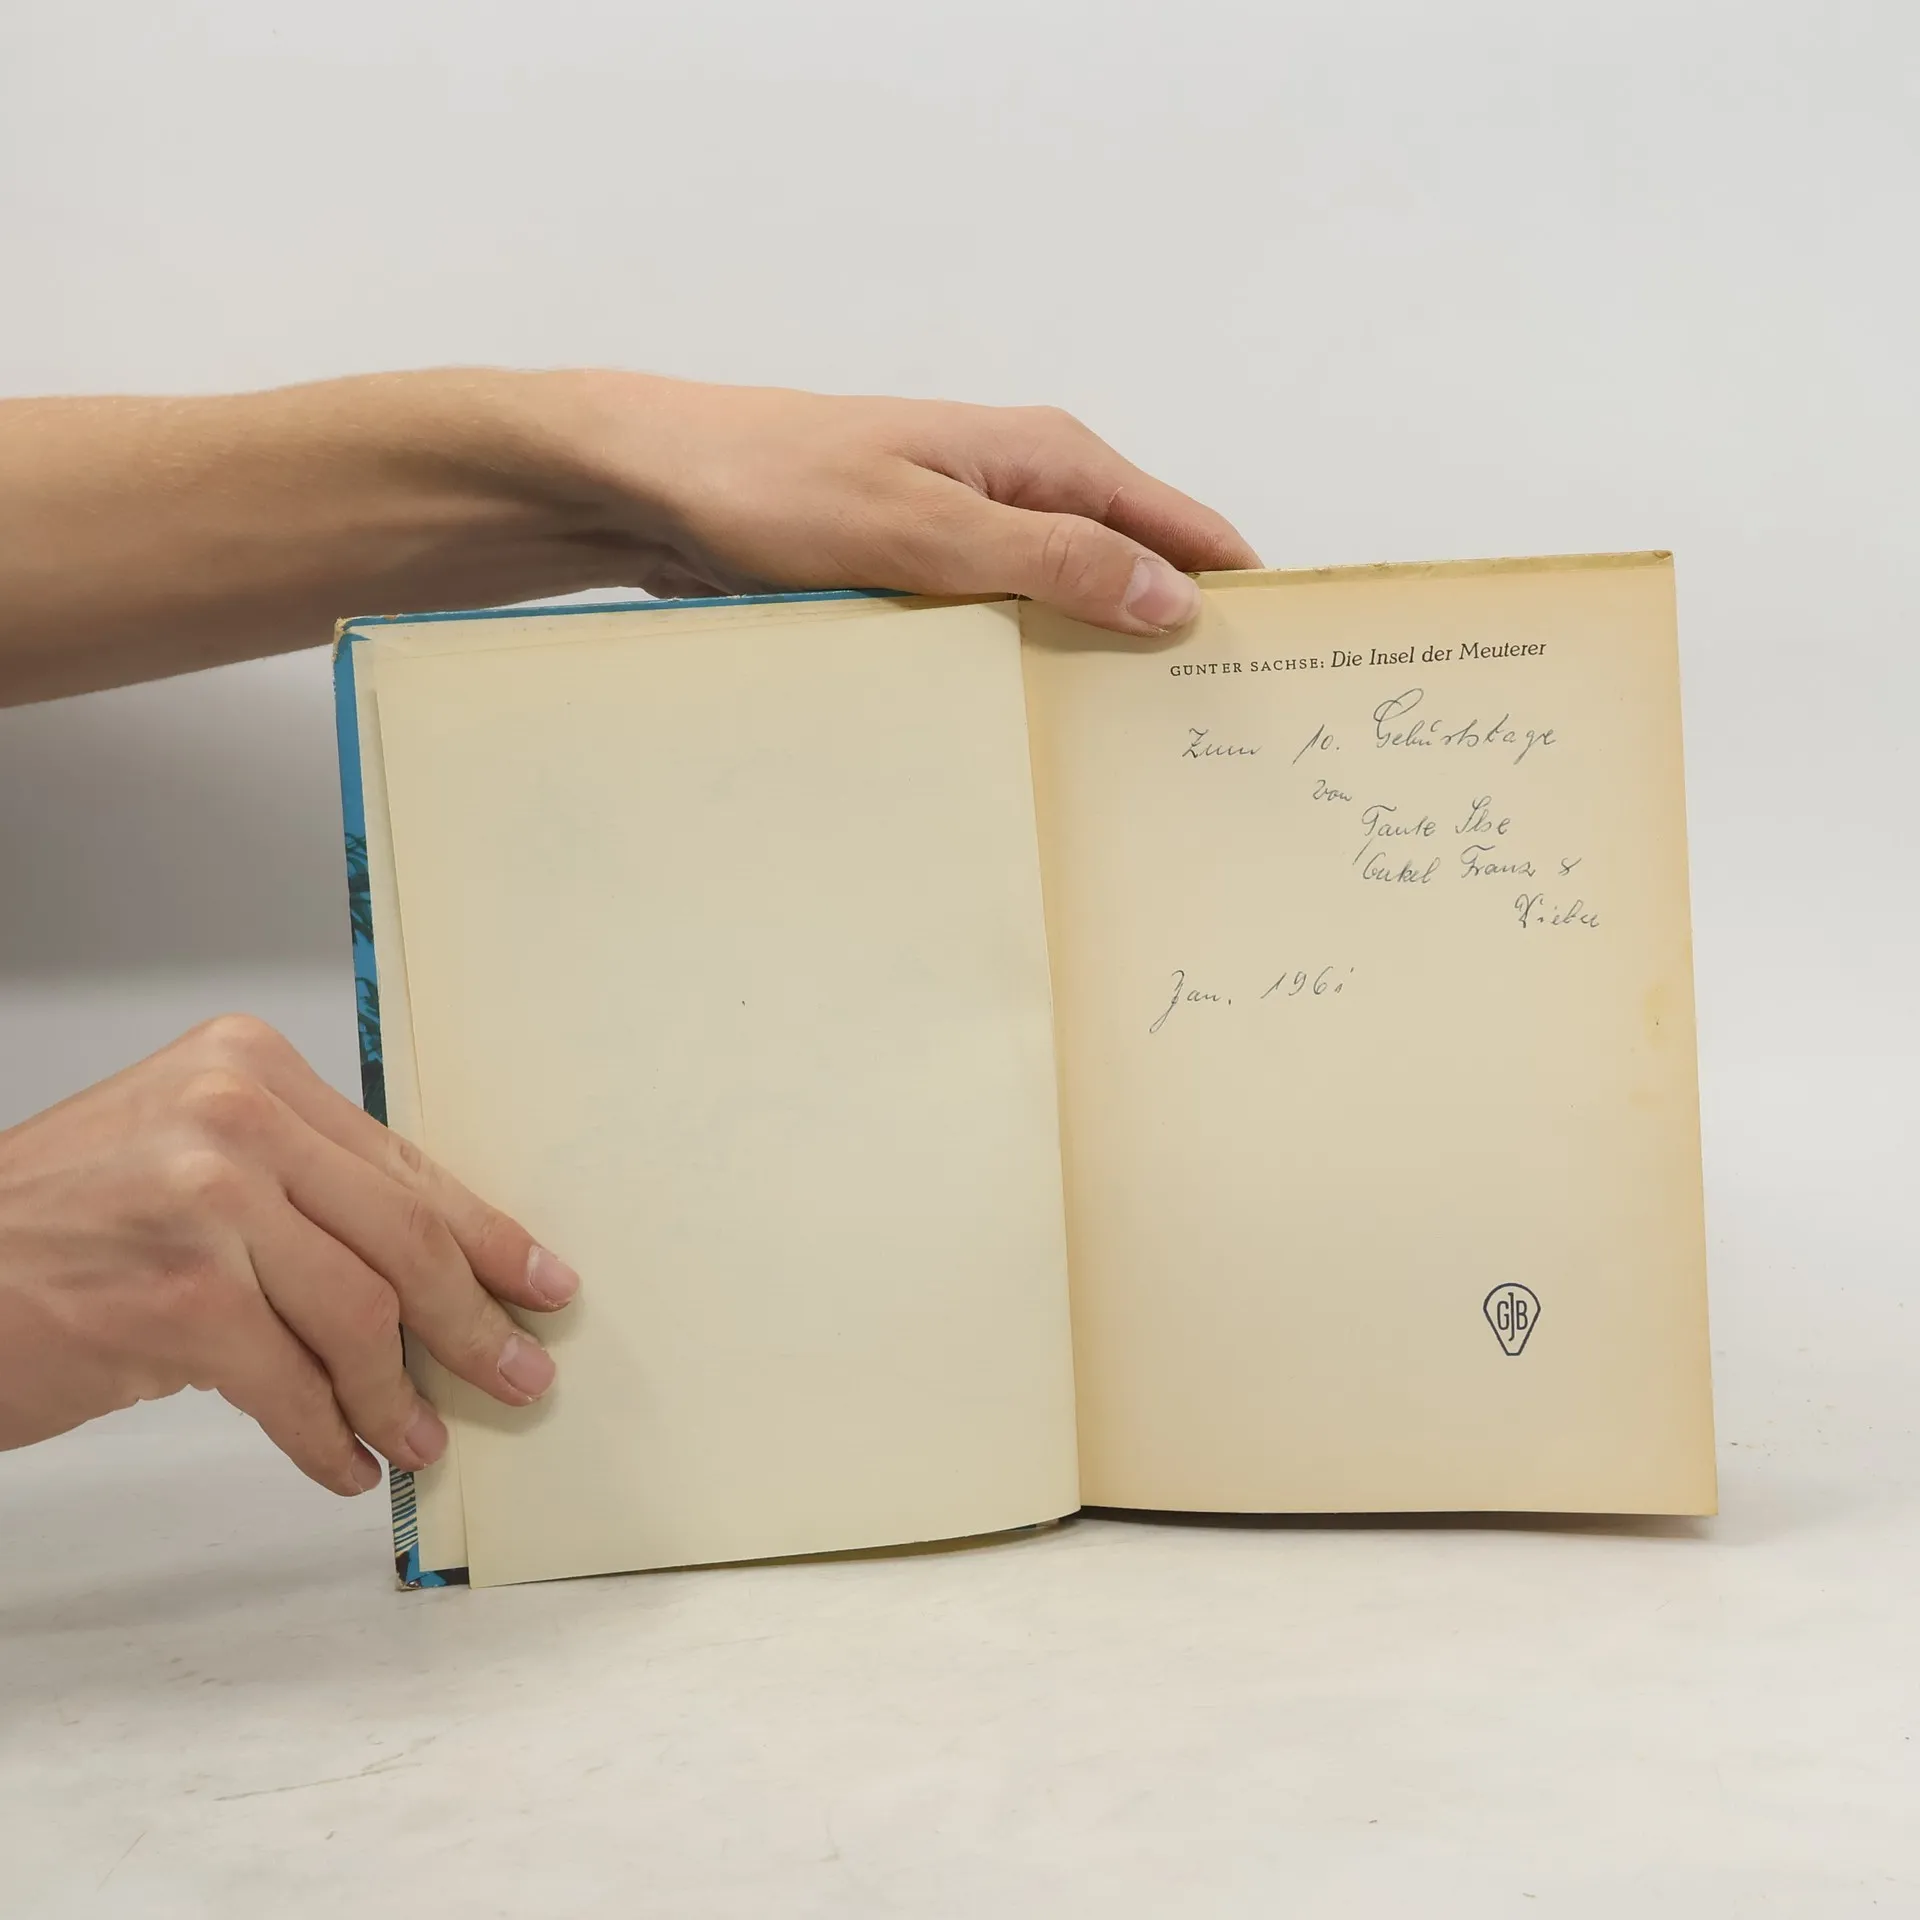 GÜNTER SACHSE: Die Insel der Meuterer
Zum 10. Geburtstage
von
Tante Ilse
Onkel Franz &
Jan. 1961
GJB